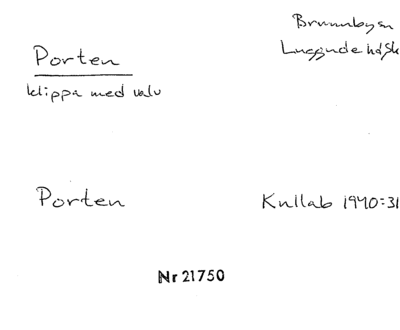 Brunnby sn
Luggude hd Sk
Porten
klippa med valv
Porten
Kullab 1940:31
Nr 21750